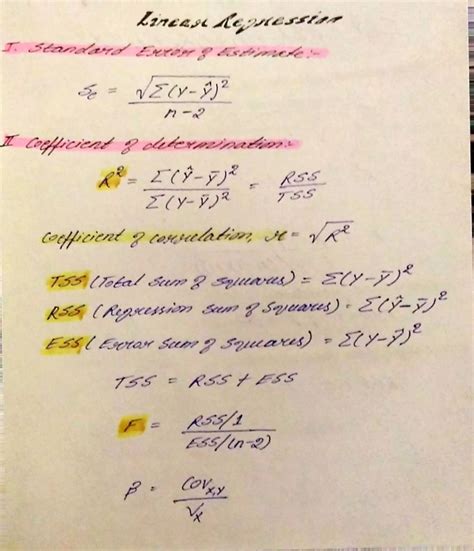 Linear Regression
I. Standard Error of Estimate:-
Se = √Σ(Y-Ŷ)² / n-2
II Coefficient of determination:-
R² = Σ(Ŷ-Ȳ)² / Σ(Y-Ȳ)² = RSS / TSS
Coefficient of correlation, r = √R²
TSS (Total Sum of Squares) = Σ(Y-Ȳ)²
RSS (Regression Sum of Squares) = Σ(Ŷ-Ȳ)²
ESS (Error Sum of Squares) = Σ(Y-Ŷ)²
TSS = RSS + ESS
F = RSS/1 / ESS/(n-2)
β = COVx,y / Vx